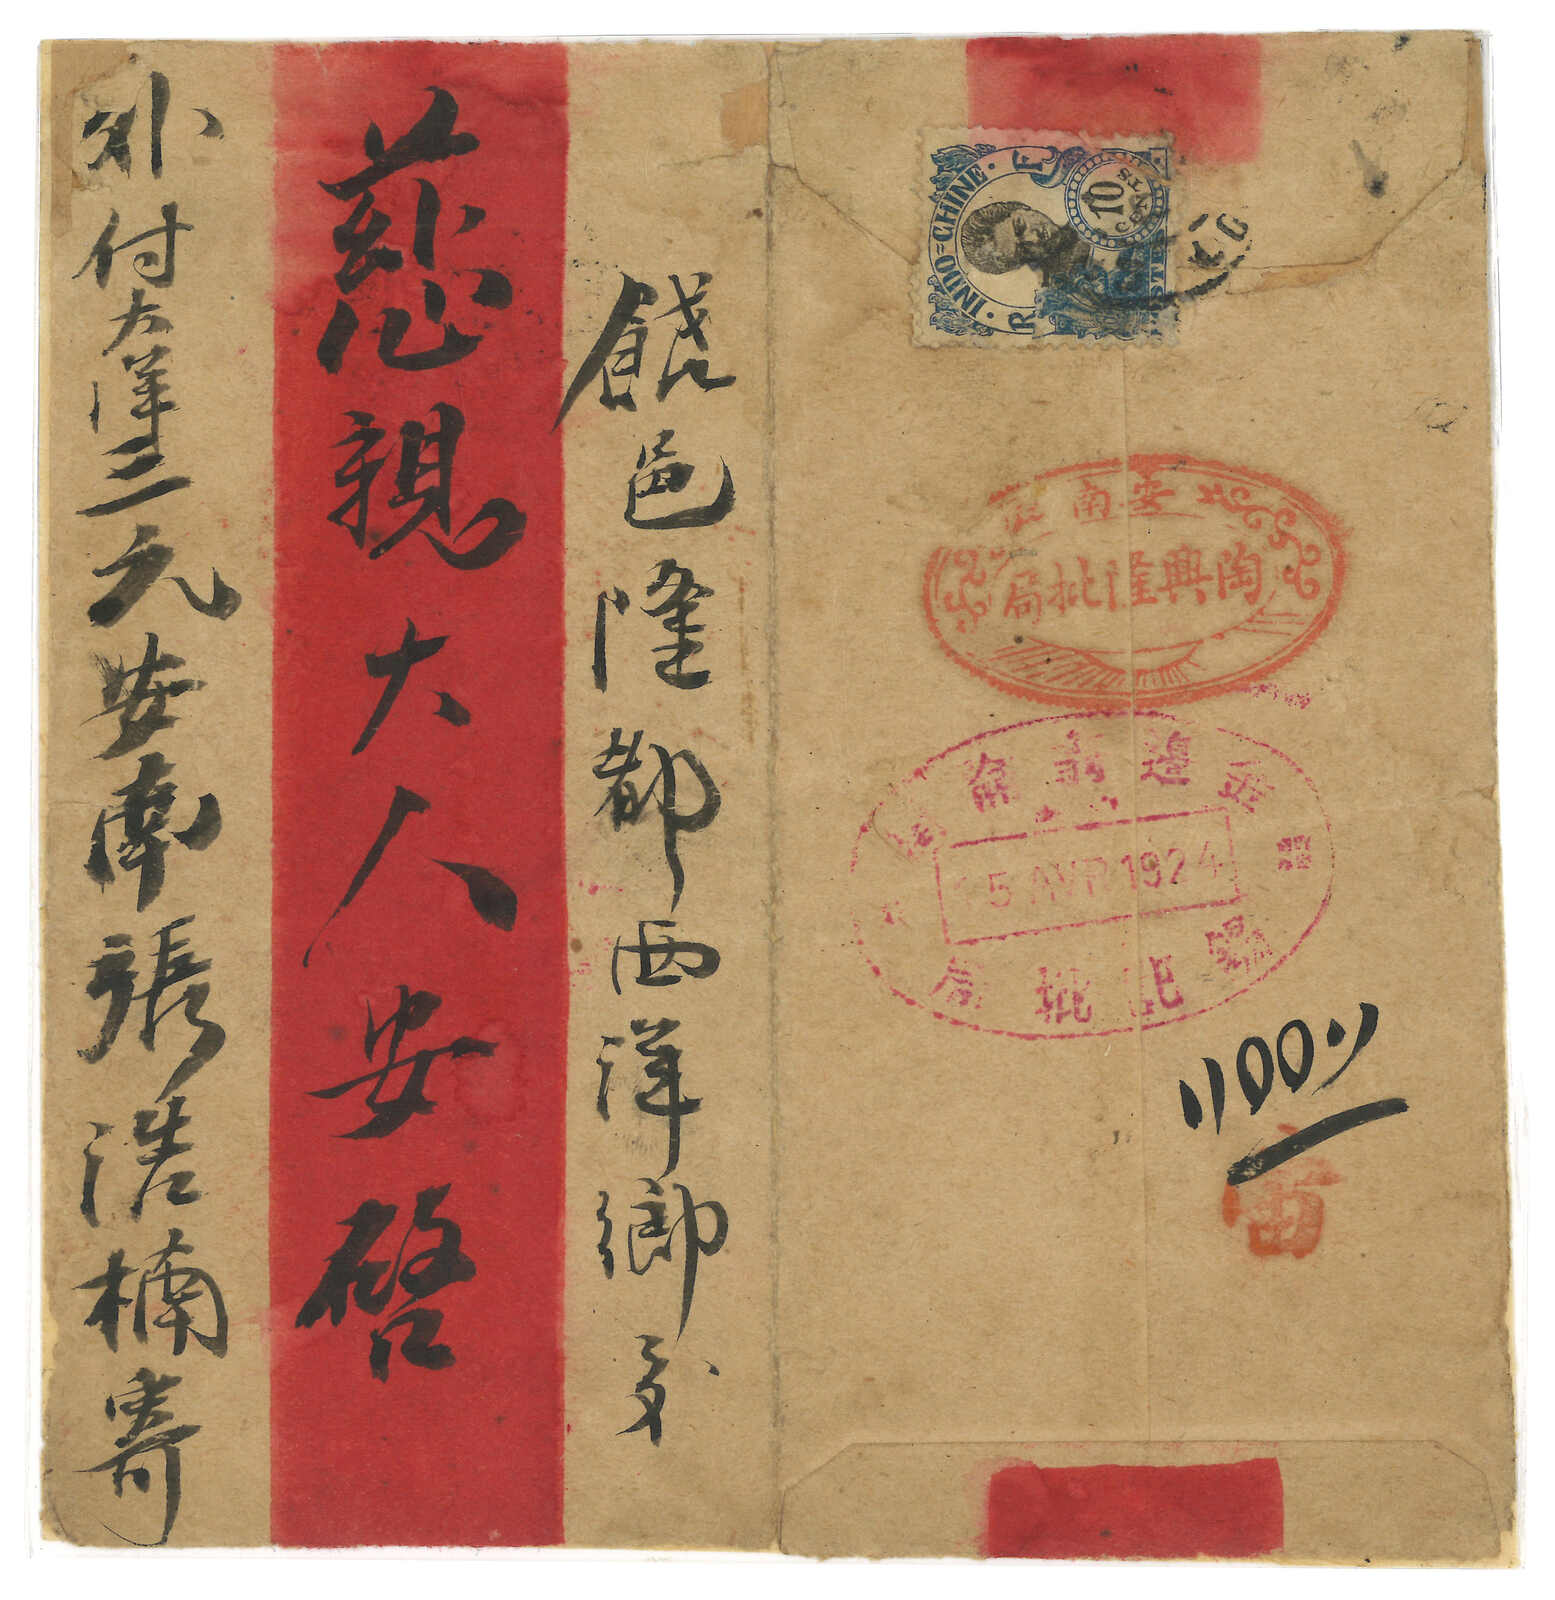 饒邑隆都西洋鄉交
慈親大人安啓
外付大洋三元安南張浩楠寄
INDO=CHINE
R F
10
CENTS
安南
陶興隆批局
5 AVR 1924
批局